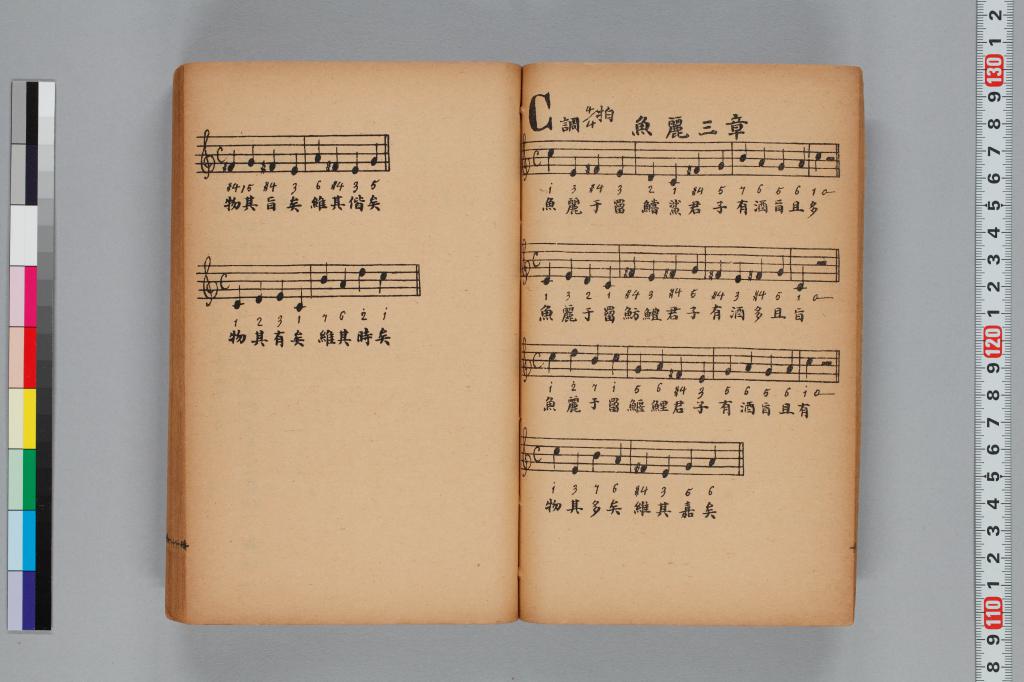 C 調 4/4 拍 魚麗三章
i 3 #4 3 2 1 #4 5 7 6 5 6 1 0
魚麗于罶 鱨鯊君子有酒旨且多
1 3 2 1 #4 3 #4 5 #4 3 #4 5 1 0
魚麗于罶魴鱧君子有酒多且旨
i 2 7 i 5 6 #4 3 5 6 5 6 i 0
魚麗于罶鰋鯉君子有酒旨且有
i 3 7 6 #4 3 5 6
物其多矣維其嘉矣
#4 5 #4 3 6 #4 3 5
物其旨矣維其偕矣
1 2 3 1 7 6 2 i
物其有矣維其時矣
2 1 130 9 8 7 6 5 4 3 2 1 120 9 8 7 6 5 4 3 2 1 110 9 8